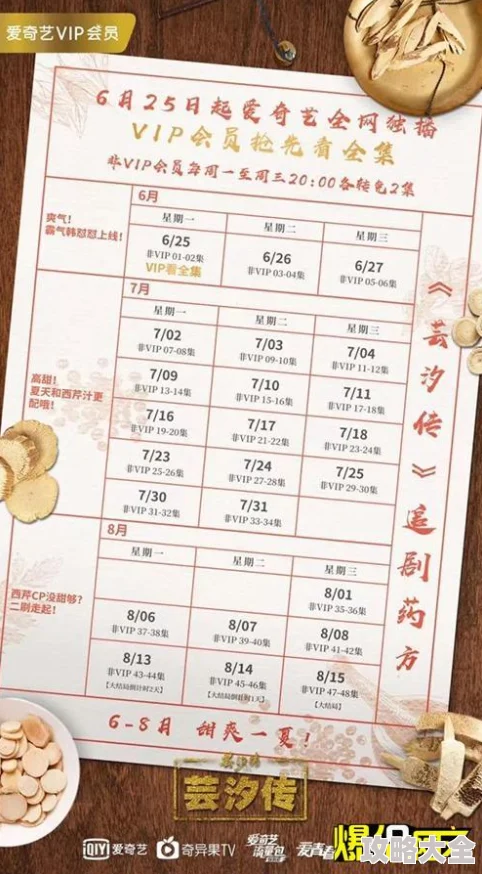 爱奇艺VIP会员
6月25日起爱奇艺全网独播
VIP会员抢先看全集
非VIP会员每周一至周三20:00各转免2集
《芸汐传》追剧药方
6月
爽气!
霸气韩怼怼上线!
星期一 星期二 星期三
6/25 6/26 6/27
非VIP 01-02集 非VIP 03-04集 非VIP 05-06集
VIP看全集
7月
高甜!
夏天和西芹汁更
配哦!
星期一 星期二 星期三
7/02 7/03 7/04
非VIP 07-08集 非VIP 09-10集 非VIP 11-12集
7/09 7/10 7/11
非VIP 13-14集 非VIP 15-16集 非VIP 17-18集
7/16 7/17 7/18
非VIP 19-20集 非VIP 21-22集 非VIP 23-24集
7/23 7/24 7/25
非VIP 25-26集 非VIP 27-28集 非VIP 29-30集
7/30 7/31
非VIP 31-32集 非VIP 33-34集
8月
西芹CP没甜够?
二刷走起!
星期一 星期二 星期三
8/01
非VIP 35-36集
8/06 8/07 8/08
非VIP 37-38集 非VIP 39-40集 非VIP 41-42集
8/13 8/14 8/15
非VIP 43-44集 非VIP 45-46集 非VIP 47-48集
【大结局倒计时2天】 【大结局倒计时1天】 【大结局】
6-8月 甜爽一夏!
芸汐传
芸汐传
iQIYI 爱奇艺 奇异果TV 爱奇艺流量包 爱青春
攻略大全